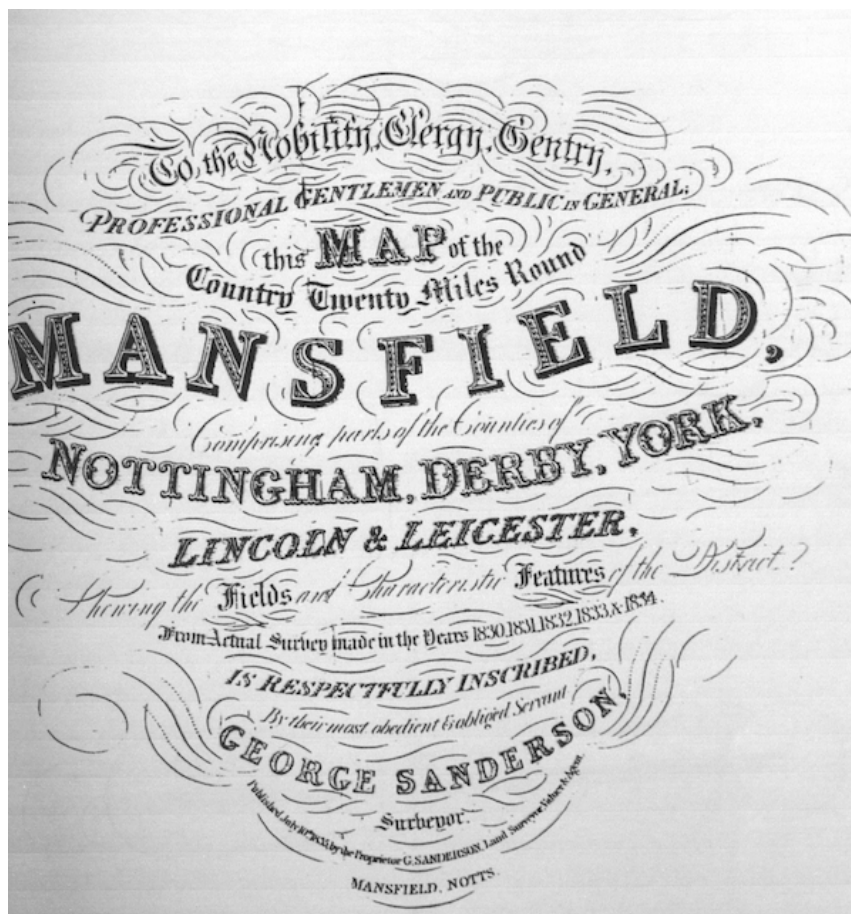 To, the Nobility, Clergy, Gentry,
PROFESSIONAL GENTLEMEN AND PUBLIC IN GENERAL;
this MAP of the
Country Twenty Miles Round
MANSFIELD,
Comprising parts of the Counties of
NOTTINGHAM, DERBY, YORK,
LINCOLN & LEICESTER,
Shewing the Fields and Characteristic Features of the District?
From Actual Survey made in the Years 1830, 1831, 1832, 1833, & 1834.
IS RESPECTFULLY INSCRIBED,
By their most obedient & obliged Servant
GEORGE SANDERSON,
Surveyor.
Published July 10th 1835, by the Proprietor G. SANDERSON, Land Surveyor Valuer & Agent,
MANSFIELD, NOTTS.